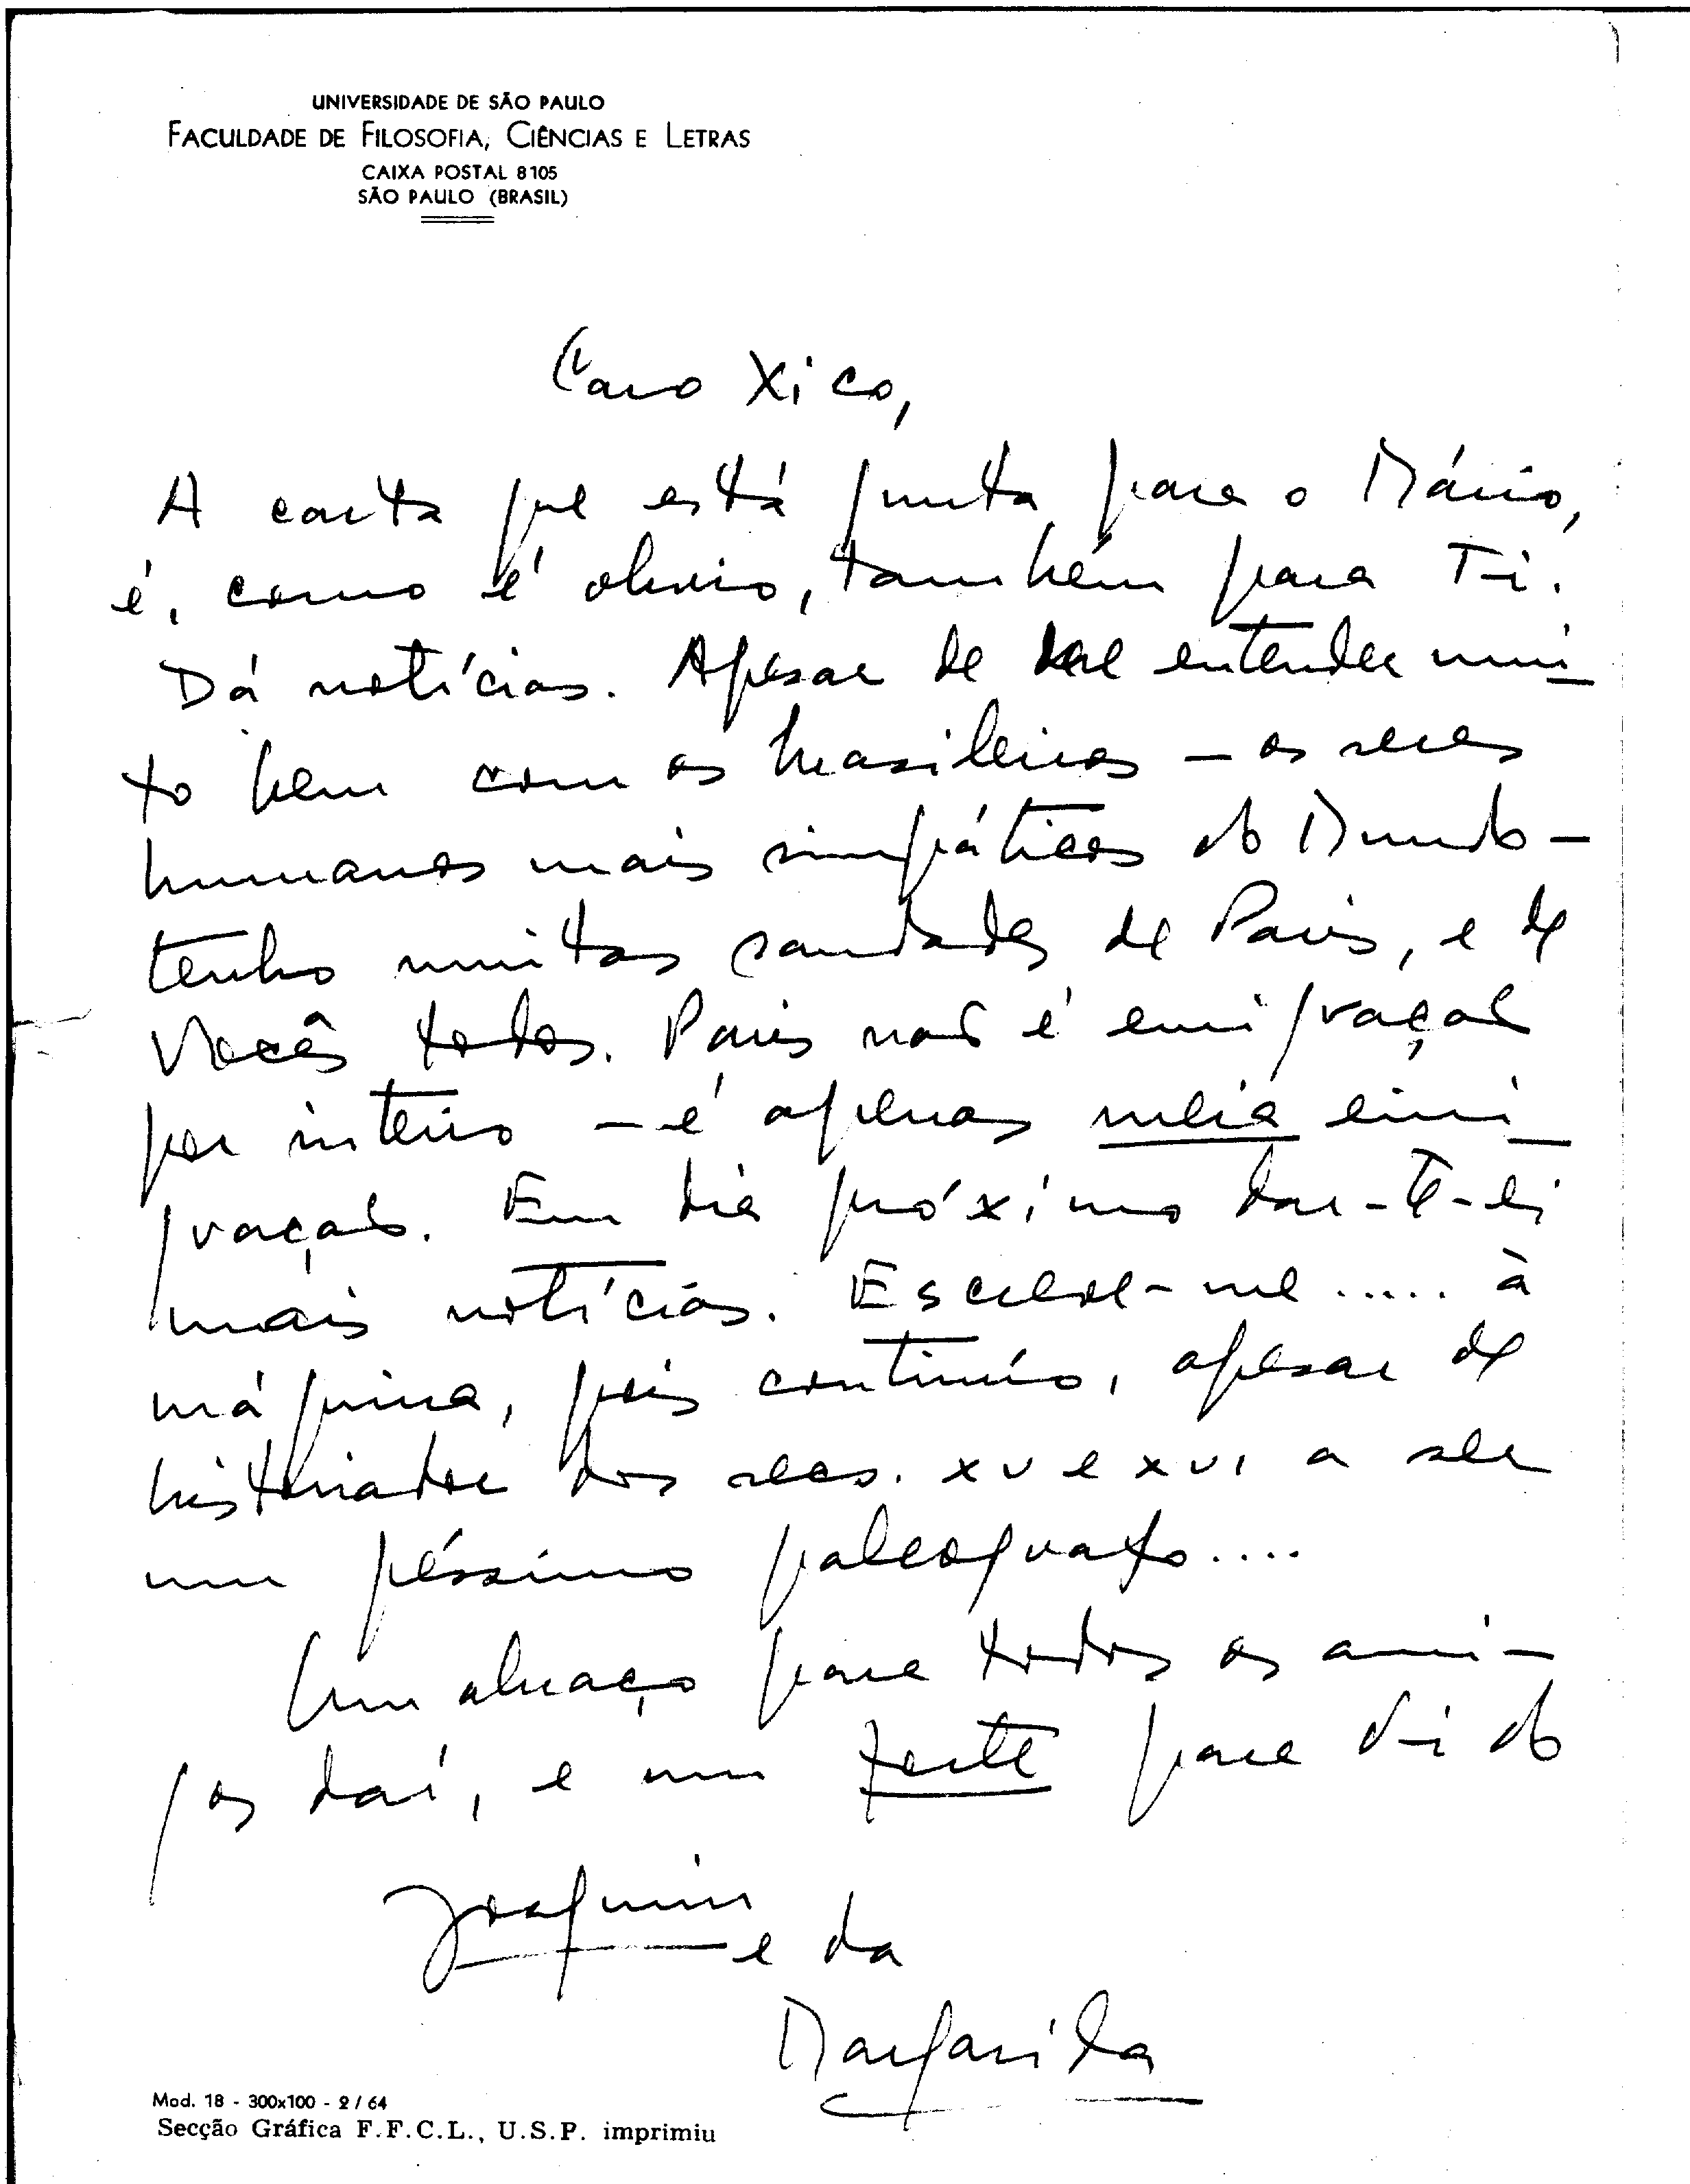 UNIVERSIDADE DE SÃO PAULO
FACULDADE DE FILOSOFIA, CIÊNCIAS E LETRAS
CAIXA POSTAL 8105
SÃO PAULO (BRASIL)
Caro Xico,
A carta que está junta para o Mário,
é, como é obvio, também para Ti.
Dá notícias. Apesar de me entender mui-
to bem com os brasileiros – os seres
humanos mais simpáticos do Mundo –
tenho muitas saudades de Paris, e de
Vocês todos. Paris não é emigração
por inteiro – é apenas meia emi-
gração. Em dia próximo dar-te-ei
mais notícias. Escreve-me ..... à
máquina, pois continúo, apesar de
historiador dos secs. XV e XVI a ser
um péssimo paleografo....
Um abraço para todos os ami-
gos daí, e um forte para ti do
Joaquim
e da
Margarida
Mod. 18 - 300x100 - 2/64
Secção Gráfica F.F.C.L., U.S.P. imprimiu